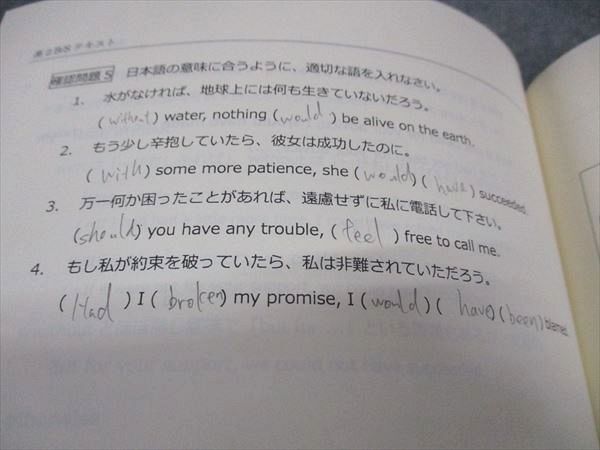 第2講S テキスト
確認問題 5 日本語の意味に合うように、適切な語を入れなさい。
1. 水がなければ、地球上には何も生きていないだろう。
( without ) water, nothing ( would ) be alive on the earth.
2. もう少し辛抱していたら、彼女は成功したのに。
( with ) some more patience, she ( would ) ( have ) succeeded.
3. 万一何か困ったことがあれば、遠慮せずに私に電話して下さい。
( should ) you have any trouble, ( feel ) free to call me.
4. もし私が約束を破っていたら、私は非難されていただろう。
( Had ) I ( broken ) my promise, I ( would ) ( have ) ( been ) blamed.